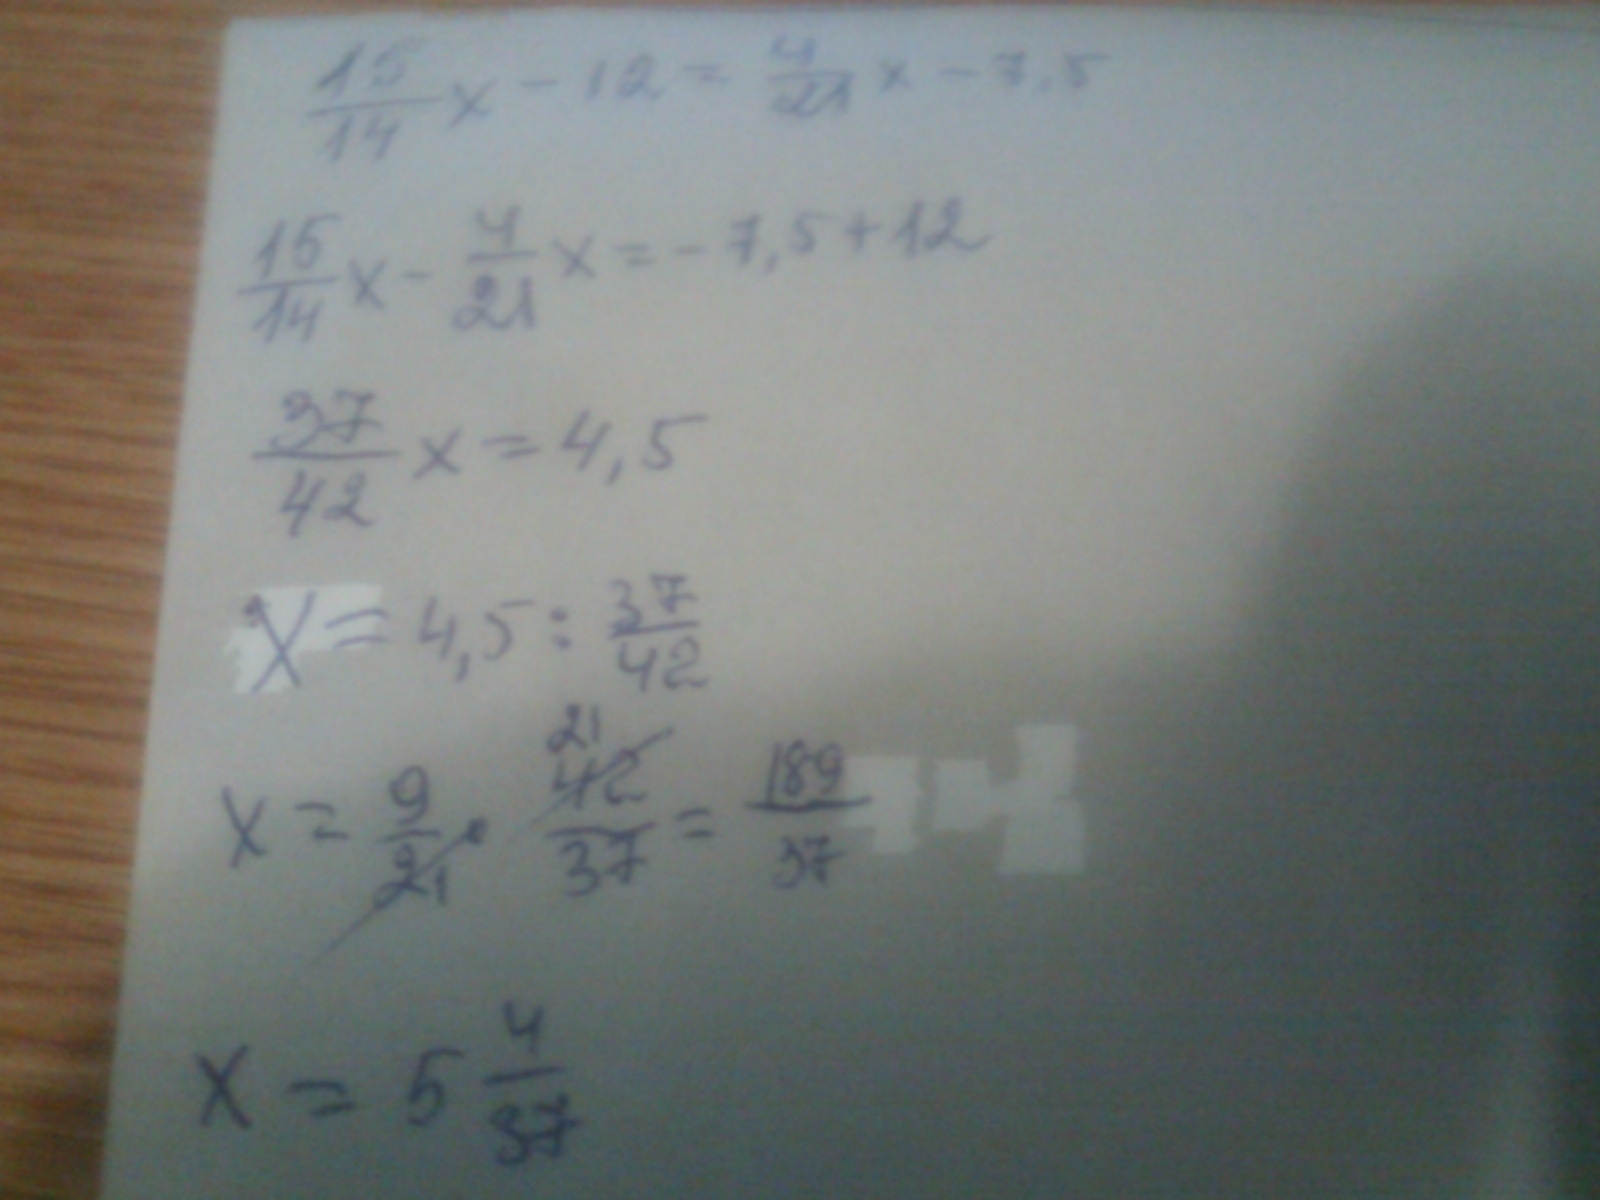 15/14 x - 12 = 4/21 x - 7,5
15/14 x - 4/21 x = - 7,5 + 12
37/42 x = 4,5
x = 4,5 : 37/42
x = 9/2 1 · 42 21/37 = 189/37
x = 5 4/37